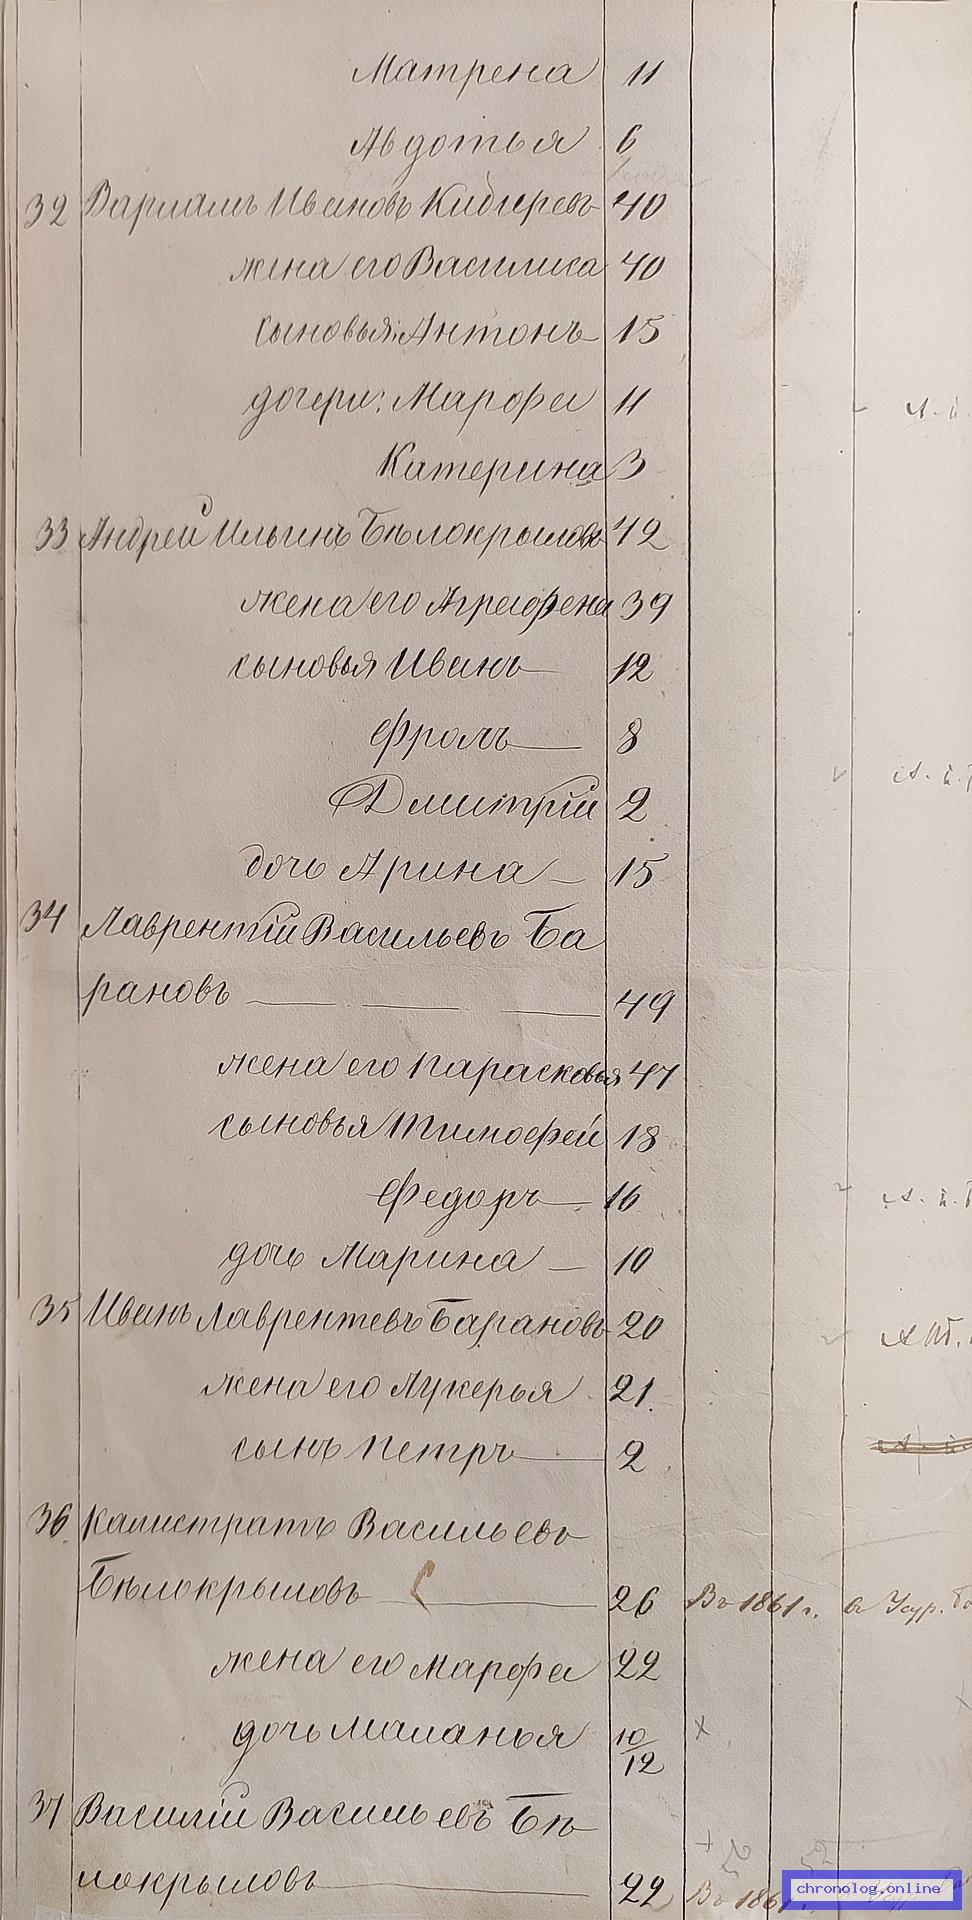 Матрена 11
Авдотья 6
32 Варламъ Ивановъ Кибиревъ 40
жена его Василиса 40
сыновья: Антонъ 15
дочери: Марфа 11
Катерина 3
33 Андрей Ильинъ Бѣлокрыловъ 42
жена его Аграфена 39
сыновья Иванъ 12
Фролъ 8
Дмитрій 2
дочь Арина 15
34 Лаврентій Васильевъ Ба
рановъ 49
жена его Парасковья 47
сыновья Тимофей 18
Федоръ 16
дочь Марина 10
35 Иванъ Лаврентевъ Барановъ 20
жена его Лукерья 21.
сынъ Петръ 2
36 Калистратъ Васильевъ
Бѣлокрыловъ 26 Въ 1861 г. в Уссур.
жена его Марфа 22
дочь Маланья 10/12 x
37 Василій Васильевъ Бѣ-
локрыловъ 22 Въ 1861 г.
chronolog.online